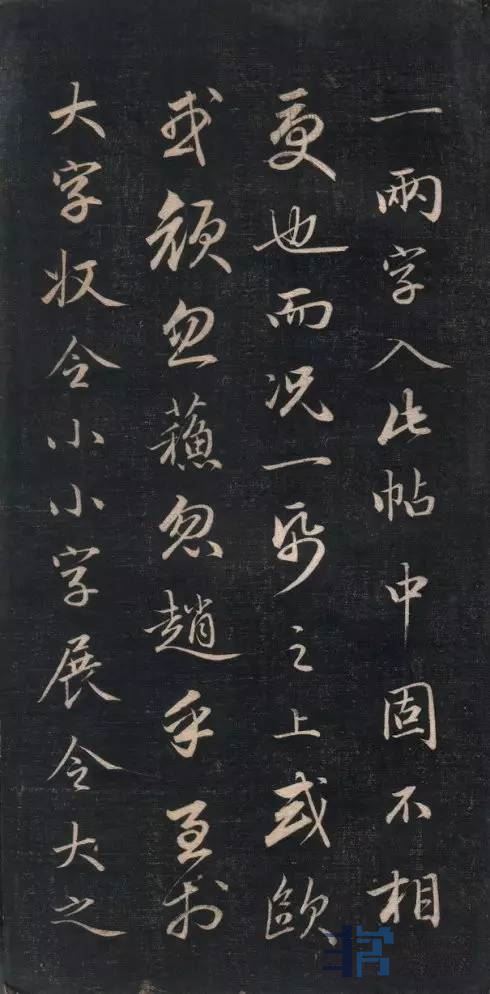 一兩字入此帖中固不相
更也而况一紙之上或歐
或顔忽蘓忽趙乎至於
大字收令小小字展令大之